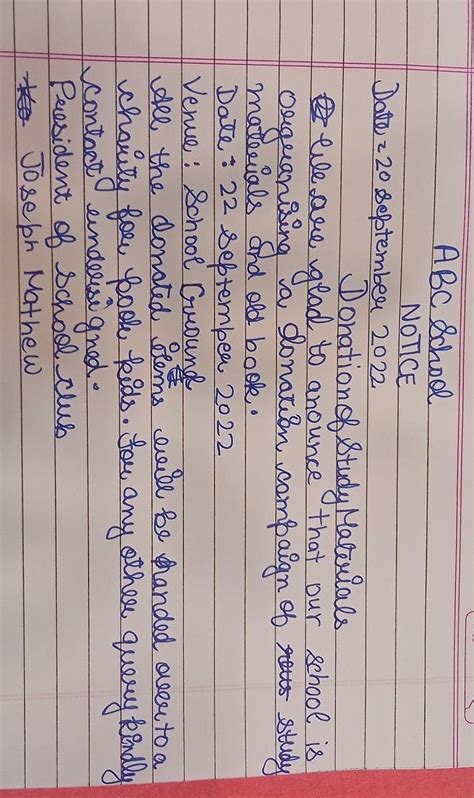 ABC School
NOTICE
Date = 20 September 2022
Donation of Study Materials
We are glad to anounce that our school is
organising a donation campaign of study
materials and old book.
Date : 22 September 2022
Venue : School Ground
All the donated items will be handed over to a
charity for poor kids. For any other query kindly
contact undersigned.
President of School Club
Joseph Mathew